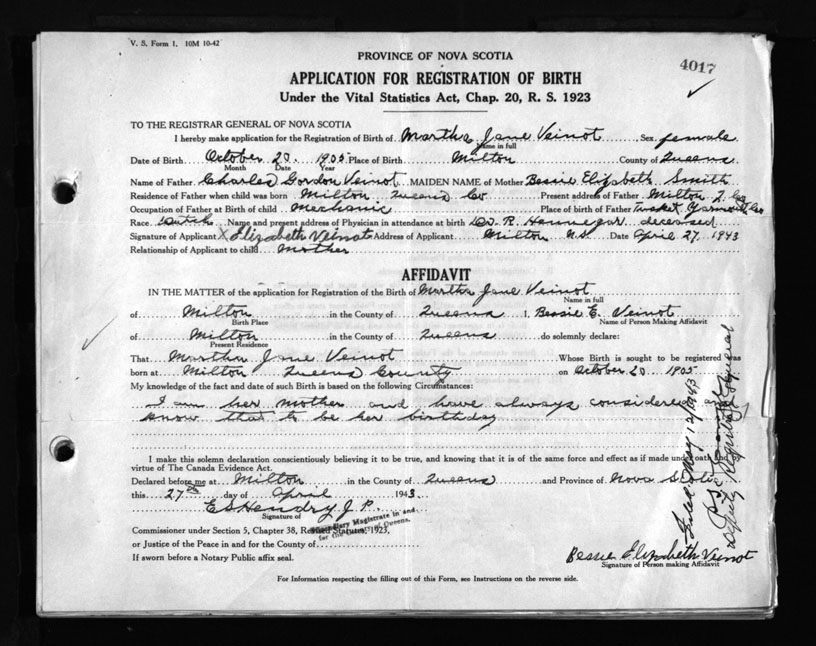 V. S. Form 1. 10M 10-42
PROVINCE OF NOVA SCOTIA
4017
APPLICATION FOR REGISTRATION OF BIRTH
Under the Vital Statistics Act, Chap. 20, R. S. 1923
TO THE REGISTRAR GENERAL OF NOVA SCOTIA
I hereby make application for the Registration of Birth of Martha Jane Veinot Sex female
Name in full
Date of Birth October 20. 1905 Place of Birth Milton County of Queens
Month Date Year
Name of Father Charles Gordon Veinot MAIDEN NAME of Mother Bessie Elizabeth Smith
Residence of Father when child was born Milton Queens Co Present address of Father Milton Q. Co
Occupation of Father at Birth of child Mechanic Place of birth of Father Tusket Yarmouth Co
Race Dutch Name and present address of Physician in attendance at birth Dr. R. Hennegar deceased
Signature of Applicant X Elizabeth Veinot Address of Applicant Milton N.S. Date April 27. 1943
Relationship of Applicant to child Mother
AFFIDAVIT
IN THE MATTER of the application for Registration of the Birth of Martha Jane Veinot
Name in full
of Milton in the County of Queens I, Bessie E. Veinot
Birth Place Name of Person Making Affidavit
of Milton in the County of Queens do solemnly declare:
Present Residence
That Martha Jane Veinot Whose Birth is sought to be registered was
born at Milton Queens County on October 20 1905
My knowledge of the fact and date of such Birth is based on the following Circumstances:
I am her mother and have always considered &
know that to be her birthday
I make this solemn declaration conscientiously believing it to be true, and knowing that it is of the same force and effect as if made under oath and
virtue of The Canada Evidence Act.
Declared before me at Milton in the County of Queens and Province of Nova Scotia
this 27th day of April 1943.
E S Hendry J. P.
Signature of
Stipendiary Magistrate in and
for the County of Queens.
Commissioner under Section 5, Chapter 38, Revised Statutes, 1923,
or Justice of the Peace in and for the County of
If sworn before a Notary Public affix seal.
Bessie Elizabeth Veinot
Signature of Person making Affidavit
For Information respecting the filling out of this Form, see Instructions on the reverse side.
Filed May 12/1943
Deputy Registrar General